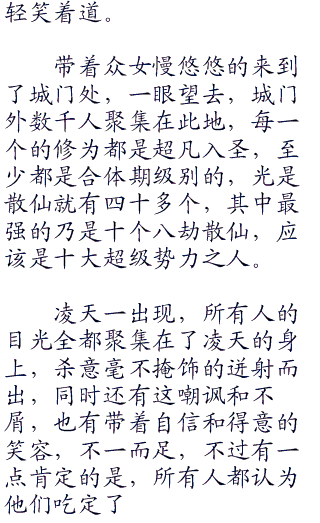 轻笑着道。
带着众女慢悠悠的来到
了城门处，一眼望去，城门
外数千人聚集在此地，每一
个的修为都是超凡入圣，至
少都是合体期级别的，光是
散仙就有四十多个，其中最
强的乃是十个八劫散仙，应
该是十大超级势力之人。
凌天一出现，所有人的
目光全都聚集在了凌天的身
上，杀意毫不掩饰的迸射而
出，同时还有这嘲讽和不
屑，也有带着自信和得意的
笑容，不一而足，不过有一
点肯定的是，所有人都认为
他们吃定了